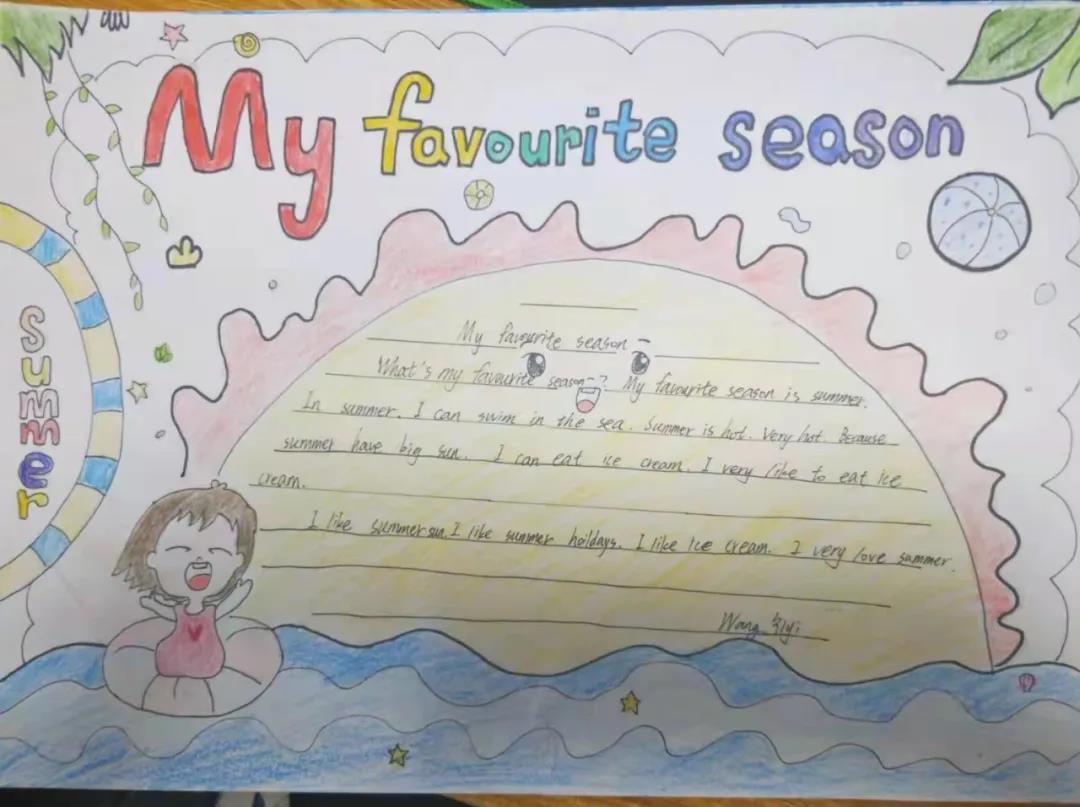 My favourite season
summer
My favourite season
What's my favourite season? My favourite season is summer.
In summer. I can swim in the sea. Summer is hot. Very hot. Because
summer have big sun. I can eat ice cream. I very like to eat ice
cream.
I like summer sun. I like summer hoildays. I like Ice cream. I very love summer.
Wang